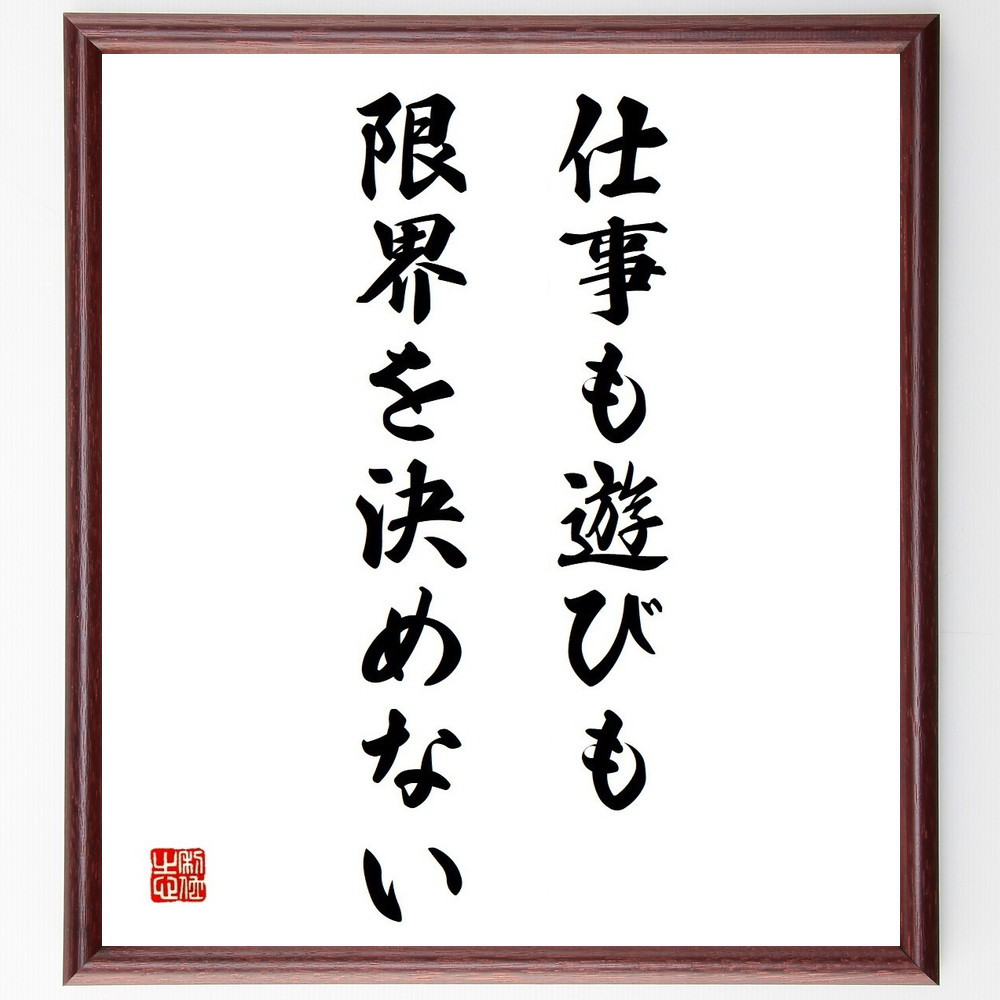 仕事も遊びも
限界を決めない